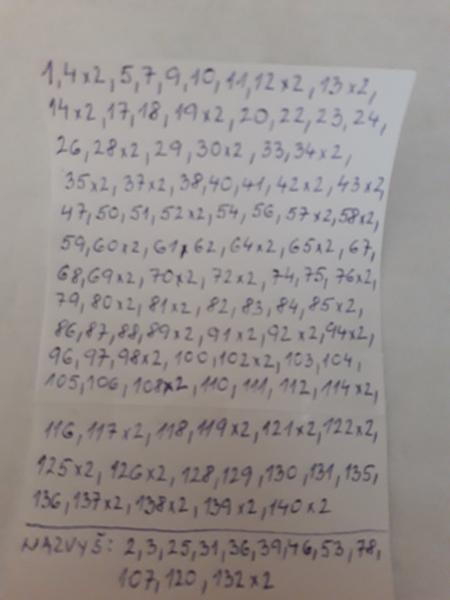 1,4x2, 5,7,9,10,11,12x2, 13x2,
14x2,17,18,19x2,20,22,23,24,
26,28x2,29,30x2,33,34x2,
35x2,37x2,38,40,41,42x2,43x2,
47,50,51,52x2,54,56,57x2,58x2,
59,60x2,61,62,64x2,65x2,67,
68,69x2,70x2,72x2,74,75,76x2,
79,80x2,81x2,82,83,84,85x2,
86,87,88,89x2,91x2,92x2,94x2,
96,97,98x2,100,102x2,103,104,
105,106,108x2,110,111,112,114x2,
116,117x2,118,119x2,121x2,122x2,
125x2,126x2,128,129,130,131,135,
136,137x2,138x2,139x2,140x2
NAZVYŠ: 2,3,25,31,36,39,46,53,78,
107,120,132x2